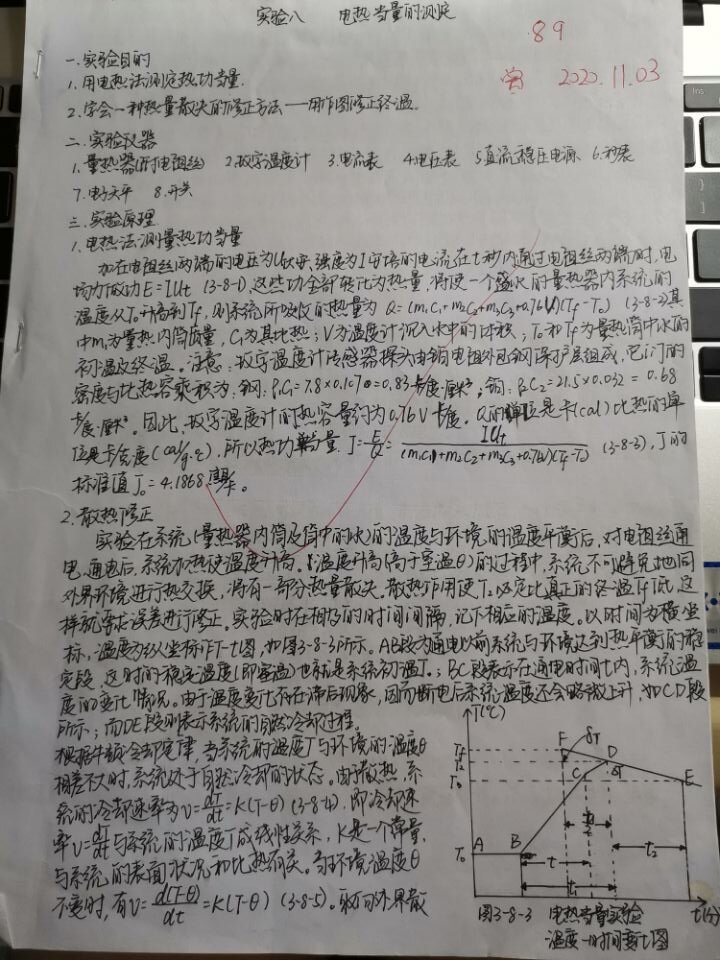 实验八 电热当量的测定
89
2020.11.03
一.实验目的
1.用电热法测定热功当量.
2.学会一种热量散失的修正方法——用作图修正终温.
二.实验仪器
1.量热器(附电阻丝) 2.数字温度计 3.电流表 4.电压表 5.直流稳压电源、 6.秒表
7.电子天平 8.开关
三.实验原理
1.电热法测量热功当量
加在电阻丝两端的电压为U伏安、强度为I安培的电流在t秒内通过电阻丝两端时,电
场力做功E=IUt (3-8-1),这些功全部转化为热量,将使一个盛水的量热器内系统的
温度从T₀升高到Tf,则系统所吸收的热量为 Q=(m₁c₁+m₂c₂+m₃c₃+0.76V)(Tf-T₀) (3-8-2)其
中m₁为量热内筒质量,C₁为其比热;V为温度计沉入水中的体积;T₀和Tf为量热筒中水的
初温及终温。注意:数字温度计传感器探头由铜电阻外包钢保护层组成,它们的
密度与比热容乘积为:钢:ρ₁C₁=7.8×0.107=0.83卡/度·厘米³;铜:ρ₂C₂=21.5×0.032=0.68
卡/度·厘米³。因此,数字温度计的热容量约为0.76V卡/度。Q的单位是卡(cal)比热的单
位是卡/克度(cal/g·℃),所以热功当量 J=E/Q=IUt/(m₁c₁+m₂c₂+m₃c₃+0.76V)(Tf-T₀) (3-8-3),J的
标准值J₀=4.1868焦耳/卡。
2.散热修正
实验在系统(量热器内筒及筒中的水)的温度与环境的温度平衡后,对电阻丝通
电,通电后,系统加热使温度升高。温度升高(高于室温θ)的过程中,系统不可避免地同
外界环境进行热交换,将有一部分热量散失。散热作用使T₀必定比真正的终温Tf低,这
样就要求误差进行修正。实验时在相等的时间间隔,记下相应的温度。以时间为横坐
标,温度为纵坐标作T-t图,如图3-8-3所示。AB段为通电以前系统与环境达到热平衡的稳
定段,这时的稳定温度(即室温)也就是系统初温T₀;BC段表示在通电时间t内,系统温
度的变化情况。由于温度变化存在滞后现象,因而断电后系统温度还会略微上升,如CD段
所示;而DE段则表示系统的自然冷却过程.
根据牛顿冷却定律,当系统的温度T与环境的温度θ
相差不大时,系统处于自然冷却的状态。由于散热,系
统的冷却速率为v=dT/dt=K(T-θ) (3-8-4),即冷却速
率v=dT/dt与系统的温度T成线性关系,K是一个常量,
与系统的表面状况和比热有关。当环境温度θ
不变时,有v=d(T-θ)/dt=K(T-θ) (3-8-5)。
T(℃)
F δT
D
C δT
E
A B
T₀
t t₂
t₁
t(分)
图3-8-3 电热当量实验
温度-时间变化图